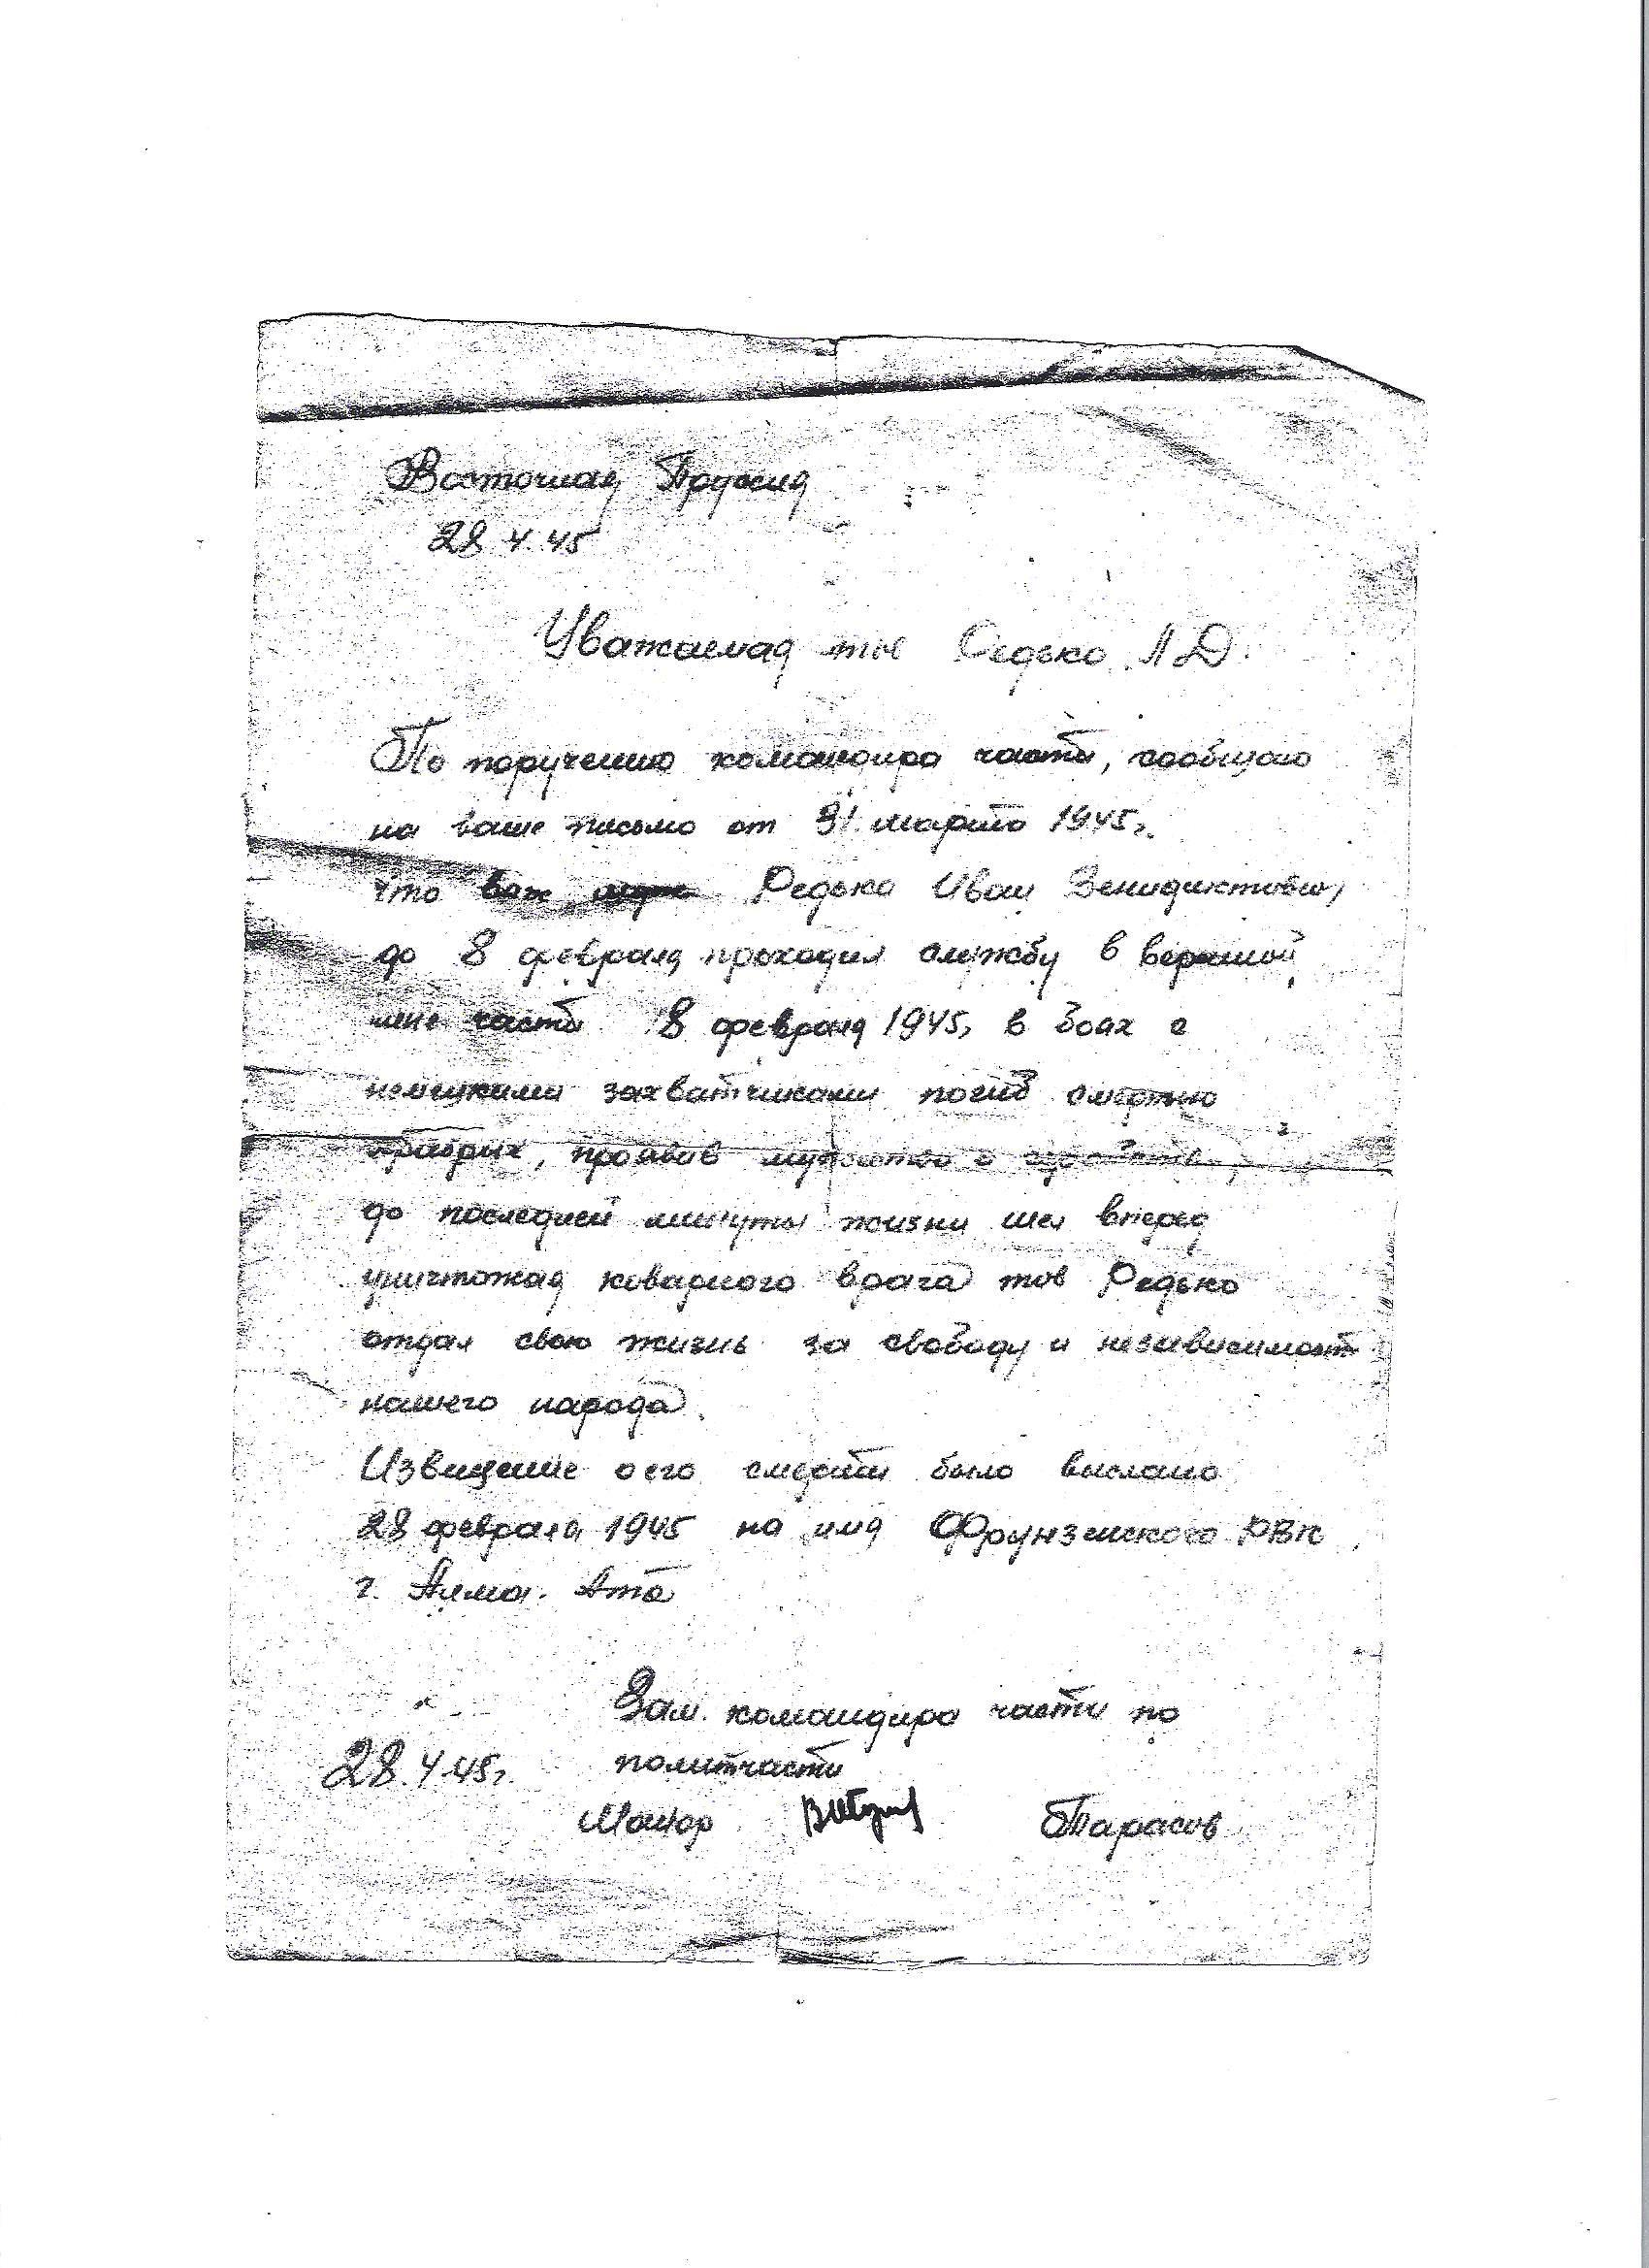 Восточная Пруссия
28.4.45
Уважаемая тов Редько Л Д.
По поручению командира части, сообщаю
на ваше письмо от 31 марта 1945г.
что ваш Редько Иван Венидиктович
до 8 февраля проходил службу в вверенной
мне части 8 февраля 1945г в боях с
немецкими захватчиками погиб смертью
храбрых, проявив мужество и
до последней минуты жизни шел вперед
уничтожая коварного врага тов Редько
отдал свою жизнь за свободу и независимость
нашего народа.
Извещение о его смерти было выслано
28 февраля 1945 на имя Фрунзенского РВК
г. Алма-Ата
Зам. командира части по
28.4.45г. политчасти
Майор Тарасов